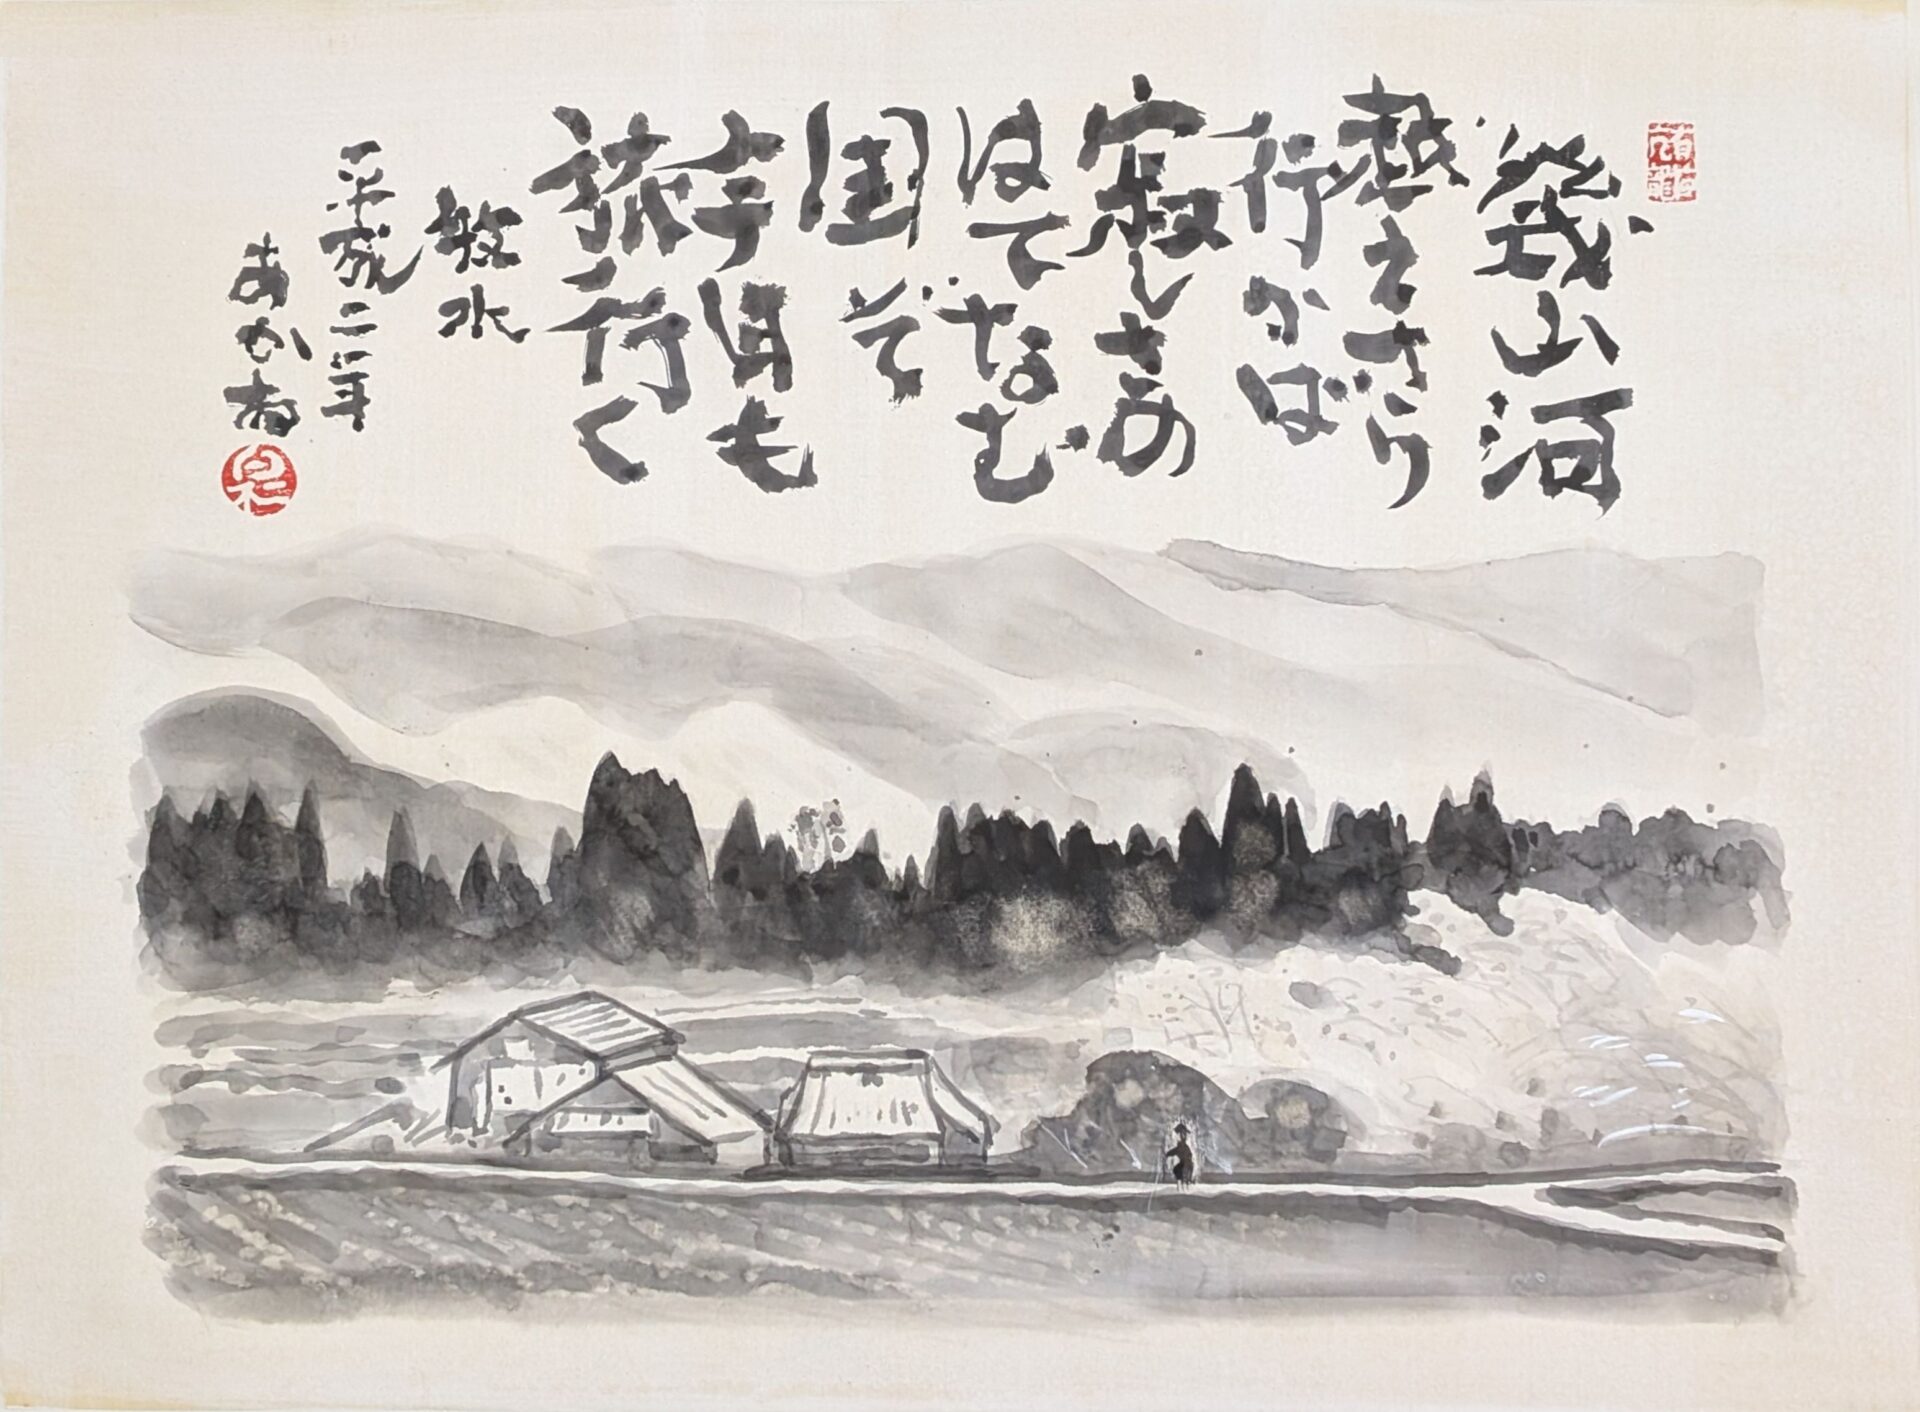 幾山河
越えさり
行かば
寂しさの
はてなむ
国ぞ
今日も
旅行く
牧水
平成二年